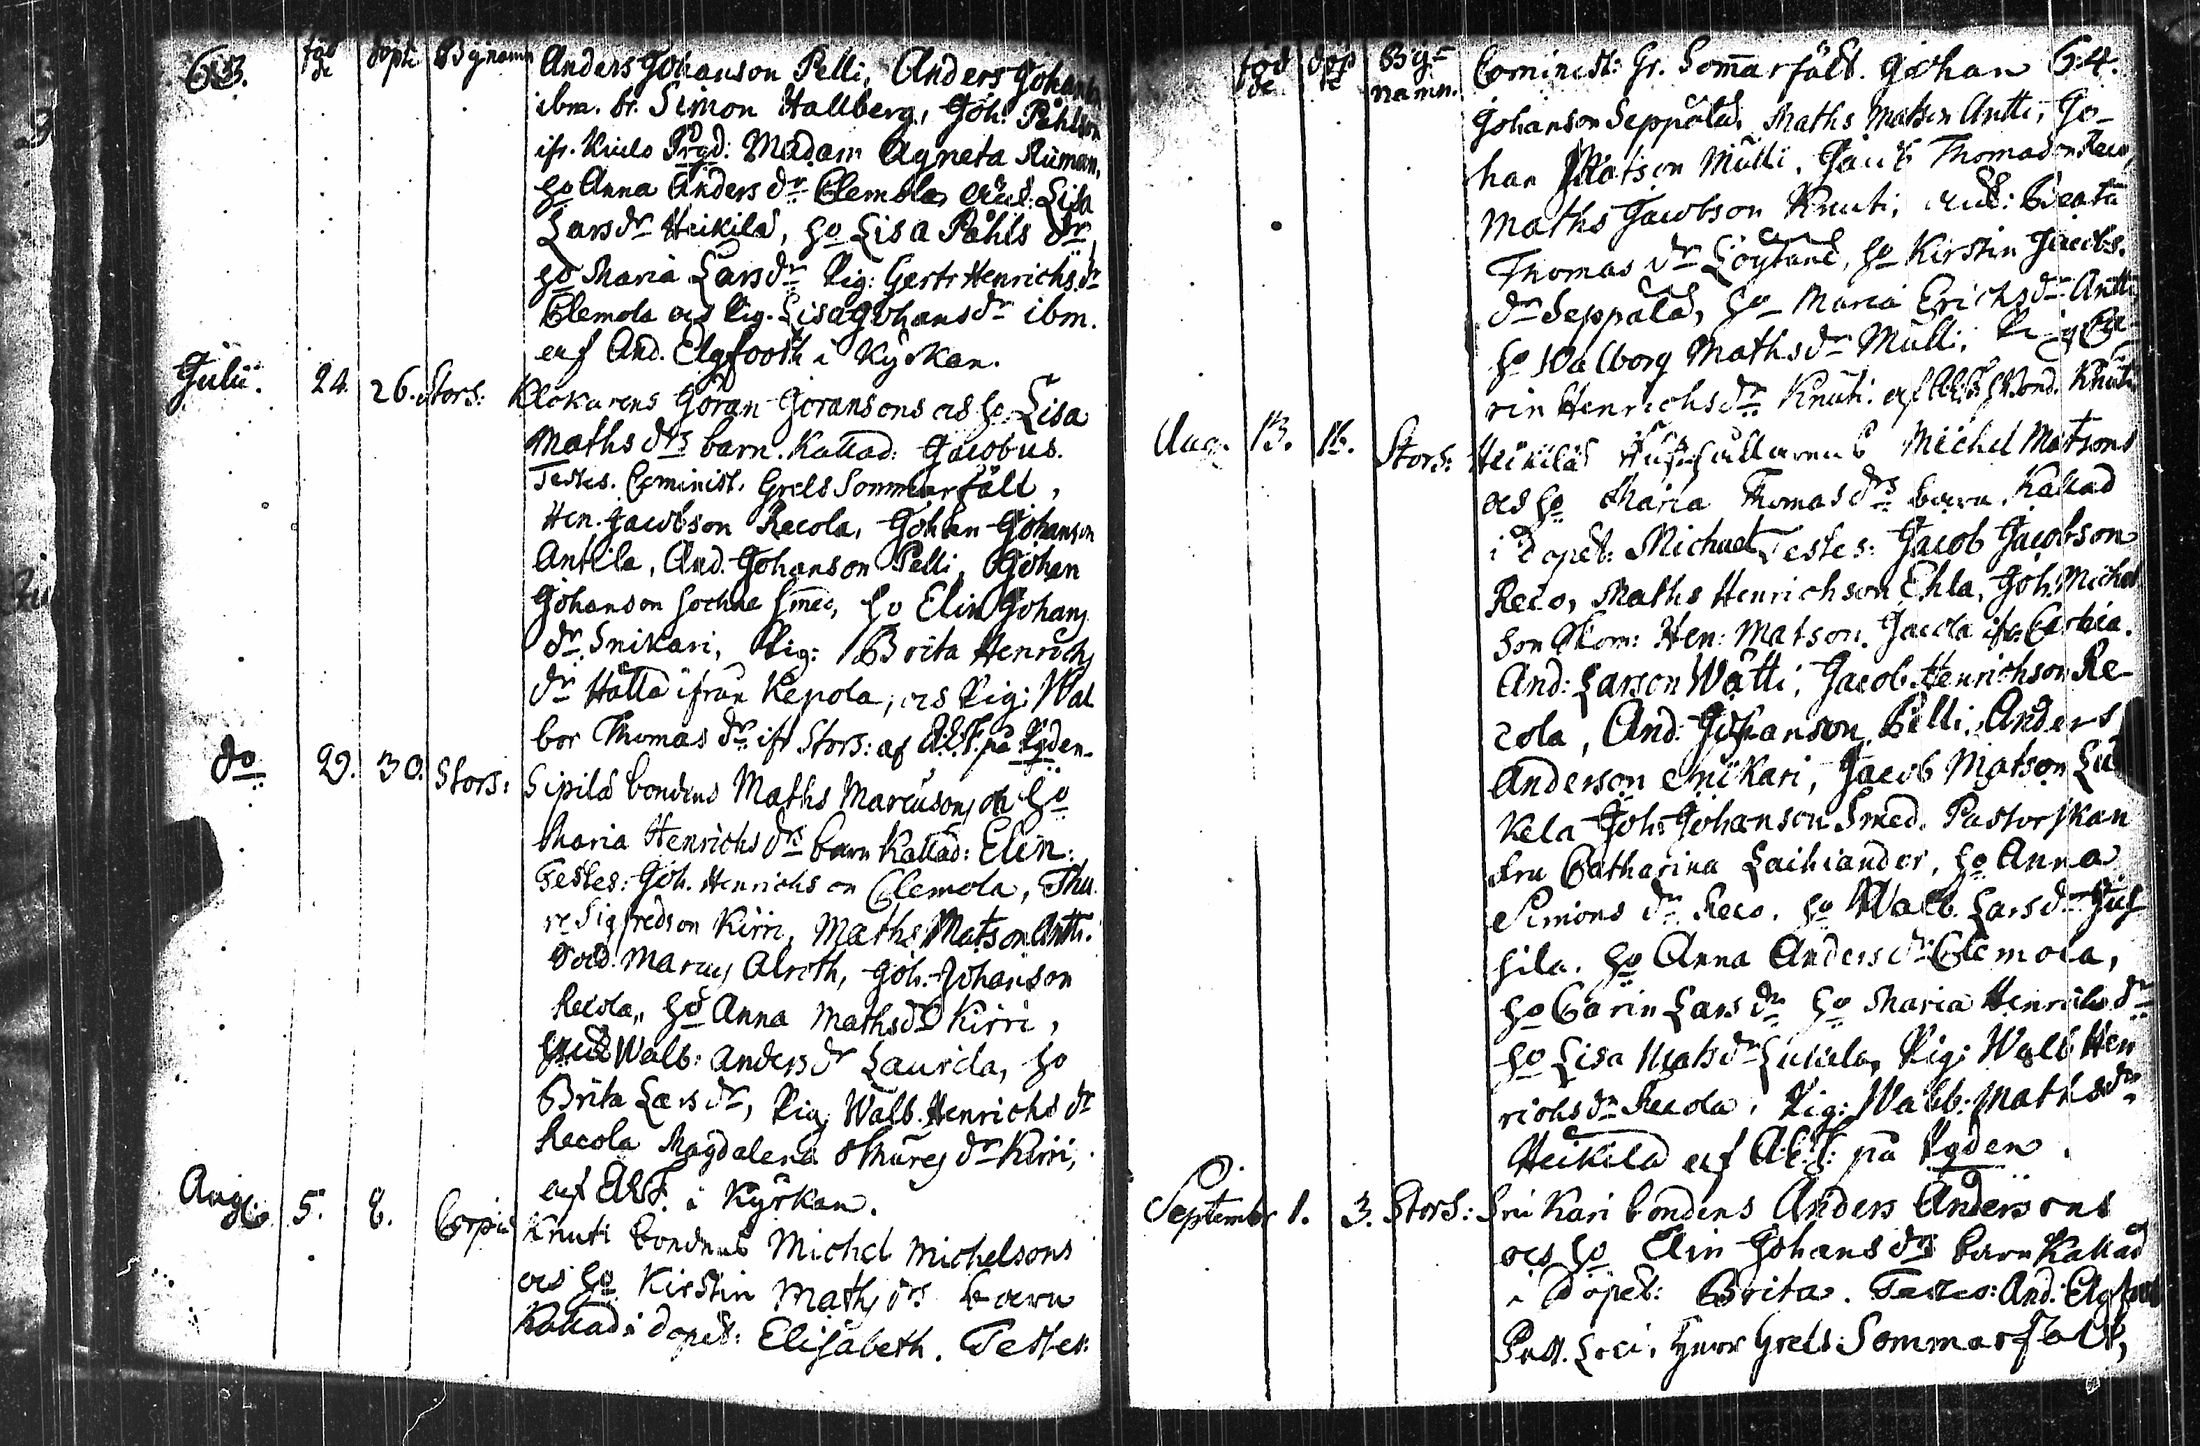 63. föd de döpte Bynamn Anders Johanson Pelli, Anders Johans
ibm. br. Simon Hallberg, Joh. Påhlson
ifr. Kiulo Prgd: Madam Agneta Ruman,
ho Anna Anders dr Clemola, och Lisa
Lars dr Heikilä, ho Lisa Påhls dr
ho Maria Lars dr Pig: Gertr Henrichs dr
Clemola och Pig. Lisa Johans dr ibm.
af And. Elgfooth i Kyrkan.
Julii. 24. 26. Stors: Klokarens Göran Göransons och ho Lisa
Maths drs barn. Kallad: Jacobus.
Testes. Cominist. Grels Sommarfält,
Hen. Jacobson Recola, Johan Johanson
Antila, And. Johanson Pelli, Johan
Johanson Sochne Smed, ho Elin Johans
dr Snikari, Pig: Brita Henrichs
dr Hålla ifrån Kepola, och Pig: Wal
bor Thomas dr ifr Stors: af A.E.F. på Pgden.
do 29. 30. Stors: Sipilä bondens Maths Marcusons och ho
Maria Henrichs drs barn Kallad: Elin:
Testes: Joh. Henrichson Clemola, Thu
re Sigfredson Kirri, Maths Matson Antti.
Sold. Marcus Alroth, Joh. Johanson
Recola, ho Anna Maths dr Kirri,
Walb: Anders dr Laurila, ho
Brita Lars dr, Pig Walb. Henrichs dr
Recola Magdalena Thures dr Kirri,
af A.E.F. i Kyrkan.
Aug. 5. 8. Corpis Knuti bondens Michel Michelsons
och ho Kirstin Maths drs barn
Kallad i dopet: Elisabeth. Testes:
föd de döp te By= namn. Cominist: Gr. Sommarfält. Johan 64.
Johanson Seppälä, Maths Matson Antti, Jo-
han Matson Mulli, Jacob Thomason Reco,
Maths Jacobson Knuti, och: Beata
Thomas dr Löytane, ho Kirstin Jacobs.
dr Seppälä, ho Maria Erichs dr Antti
ho Walborg Maths dr Mulli, Pig Ca-
rin Henrichs dr Knuti. af Knuti
Aug. 13. 16. Stors: Heikilä Michel Matsons
och ho Maria Thomas drs barn. Kallad
i Dopet: Michael Testes: Jacob Jacobson
Reco, Maths Henrichson Ehla, Joh. Michel
son Skom: Hen: Matson. Jacola ifr. Corbia.
And: Larson Wätti, Jacob Henrichson Re-
cola, And: Johanson Pelli, Anders
Anderson Snikari, Jacob Matson Lu
kela Joh. Johanson Smed. Pastorskan
fru Catharina Laihiander, ho Anna
Simons dr Reco. ho Walb. Lars dr Jus
sila. ho Anna Anders dr Clemola,
ho Carin Lars dr ho Maria Henrichs dr
ho Lisa Mats dr Lukela, Pig: Walb Hen
richs dr Recola, Pig: Walb: Maths dr
Heikilä af A.E.F. på Pgden.
September 1. 3. Stors: Snikari bondens Anders Andersons
och ho Elin Johans drs barn Kallad
i Döpet: Brita. Testes: And. Elgfoot
Past. Loci, Herr Grels Sommarfält,